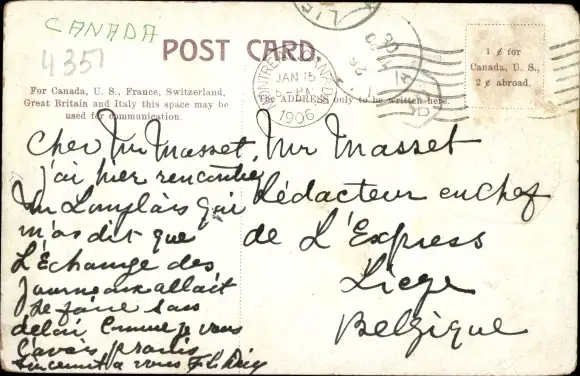 CANADA
4351
POST CARD.
For Canada, U. S., France, Switzerland,
Great Britain and Italy this space may be
used for communication.
The ADDRESS only to be written here.
1 ¢ for
Canada, U. S.,
2 ¢ abroad.
MONTREAL CANADA
JAN 15
5-PM
1906
Cher Mr Masset,
j'ai hier rencontré
Mr Langlais qui
m'as dit que
L'Échange des
Journeaux allait
se faire sans
délai comme je vous
l'avais promis
Sincerement a vous
Mr Masset
Rédacteur en Chef
de L'Express
Liege
Belgique